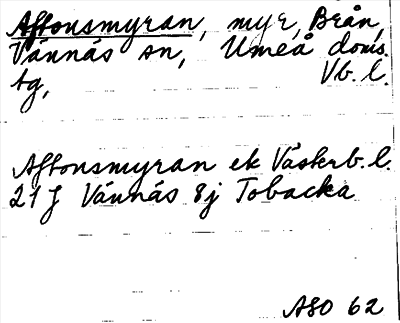 Aftonsmyran, myr, Brån,
Vännäs sn, Umeå doms.
tg, Vb. l.
Aftonsmyran ek Västerb. l.
21 J Vännäs 8j Tobacka
ASO 62